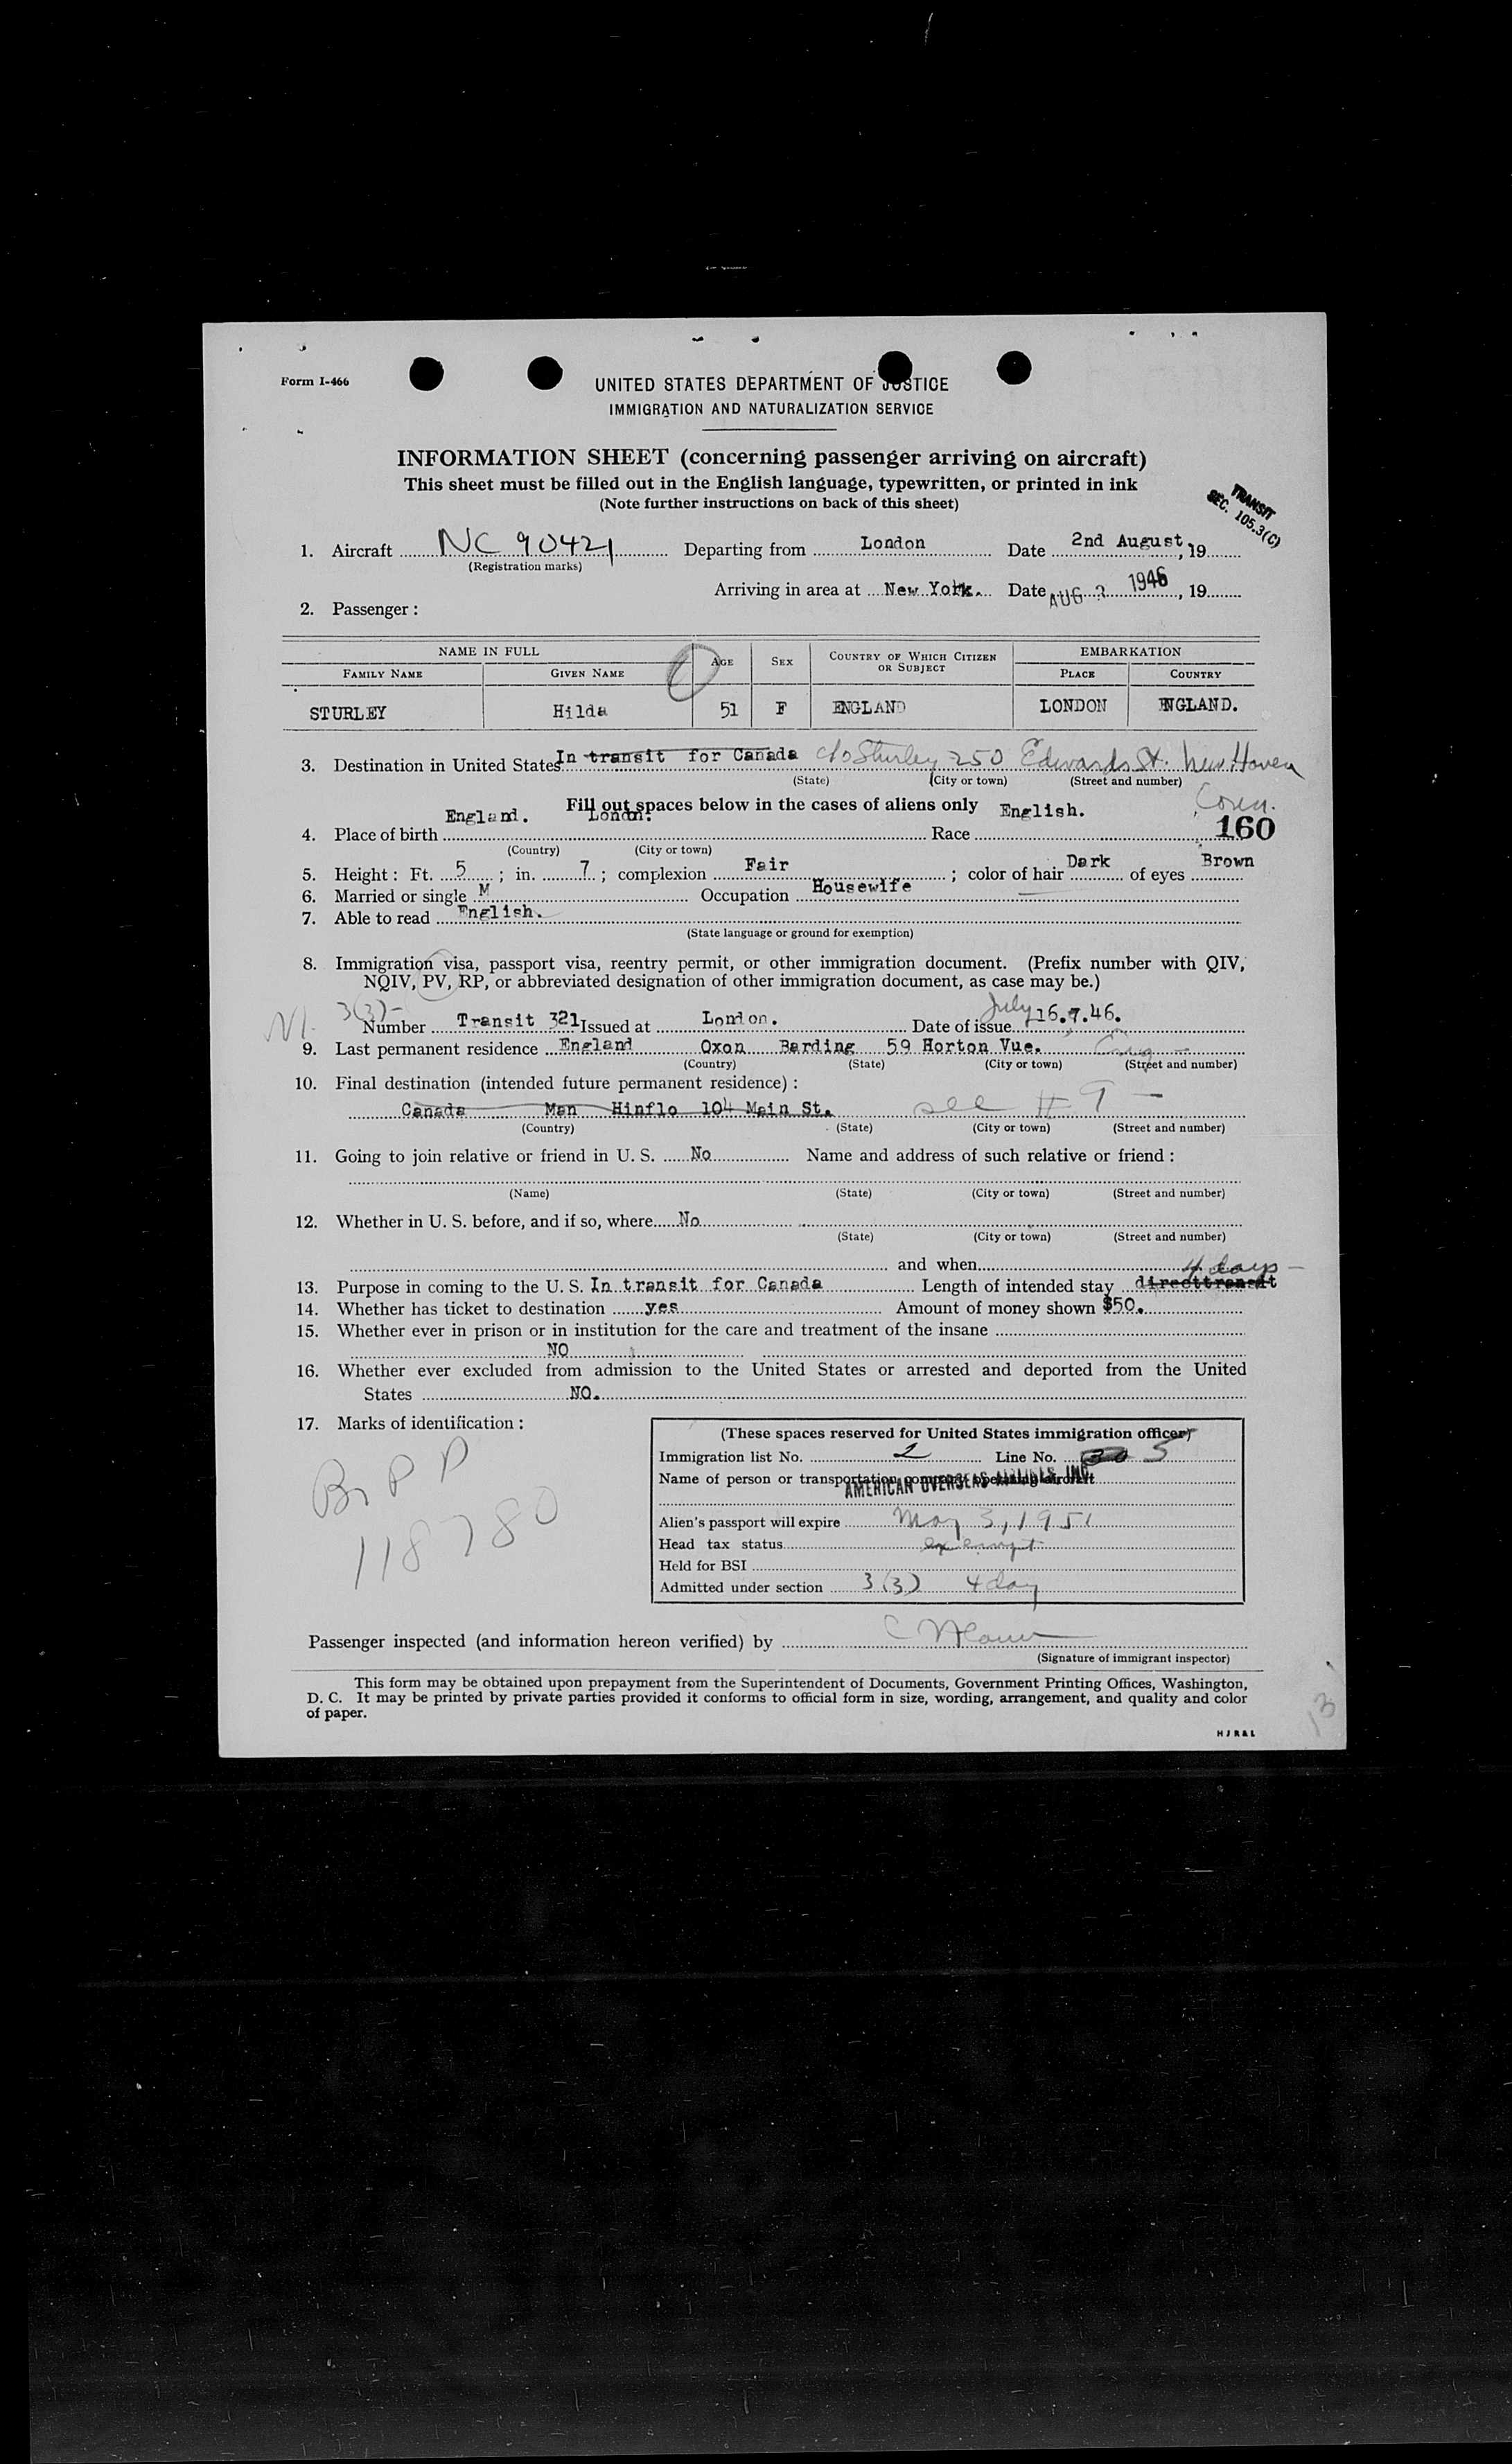 Form I-466
UNITED STATES DEPARTMENT OF JUSTICE
IMMIGRATION AND NATURALIZATION SERVICE
INFORMATION SHEET (concerning passenger arriving on aircraft)
This sheet must be filled out in the English language, typewritten, or printed in ink
(Note further instructions on back of this sheet)
TRANSIT
SEC. 105.3(C)
1. Aircraft NC 90421 Departing from London Date 2nd August, 19
(Registration marks)
Arriving in area at New York. Date AUG 3 1946, 19
2. Passenger:
NAME IN FULL AGE SEX COUNTRY OF WHICH CITIZEN OR SUBJECT EMBARKATION
FAMILY NAME GIVEN NAME PLACE COUNTRY
STURLEY Hilda 51 F ENGLAND LONDON ENGLAND.
3. Destination in United States In transit for Canada c/o Sturley 250 Edwards St. New Haven
(State) (City or town) (Street and number)
Conn.
Fill out spaces below in the cases of aliens only
160
4. Place of birth England. London. Race English.
(Country) (City or town)
5. Height: Ft. 5; in. 7; complexion Fair; color of hair Dark of eyes Brown
6. Married or single M Occupation Housewife
7. Able to read English.
(State language or ground for exemption)
8. Immigration visa, passport visa, reentry permit, or other immigration document. (Prefix number with QIV,
NQIV, PV, RP, or abbreviated designation of other immigration document, as case may be.)
3(3)-
Number Transit 321 Issued at London. Date of issue July 16.7.46.
9. Last permanent residence England Oxon Barding 59 Horton Vue. Eng -
(Country) (State) (City or town) (Street and number)
10. Final destination (intended future permanent residence):
Canada Man Hinflo 104 Main St. see # 9 -
(Country) (State) (City or town) (Street and number)
11. Going to join relative or friend in U. S. No Name and address of such relative or friend:
(Name) (State) (City or town) (Street and number)
12. Whether in U. S. before, and if so, where No
(State) (City or town) (Street and number)
and when
4 days -
13. Purpose in coming to the U. S. In transit for Canada Length of intended stay directtransit
14. Whether has ticket to destination yes Amount of money shown $50.
15. Whether ever in prison or in institution for the care and treatment of the insane
NO
16. Whether ever excluded from admission to the United States or arrested and deported from the United
States NO.
17. Marks of identification:
Br P P
118780
(These spaces reserved for United States immigration officer)
Immigration list No. 2 Line No. 30 5
Name of person or transportation company operating aircraft
AMERICAN OVERSEAS AIRLINES, INC.
Alien's passport will expire May 3, 1951
Head tax status exempt
Held for BSI
Admitted under section 3(3) 4 day
Passenger inspected (and information hereon verified) by
(Signature of immigrant inspector)
This form may be obtained upon prepayment from the Superintendent of Documents, Government Printing Offices, Washington,
D. C. It may be printed by private parties provided it conforms to official form in size, wording, arrangement, and quality and color
of paper.
HJR&L
13